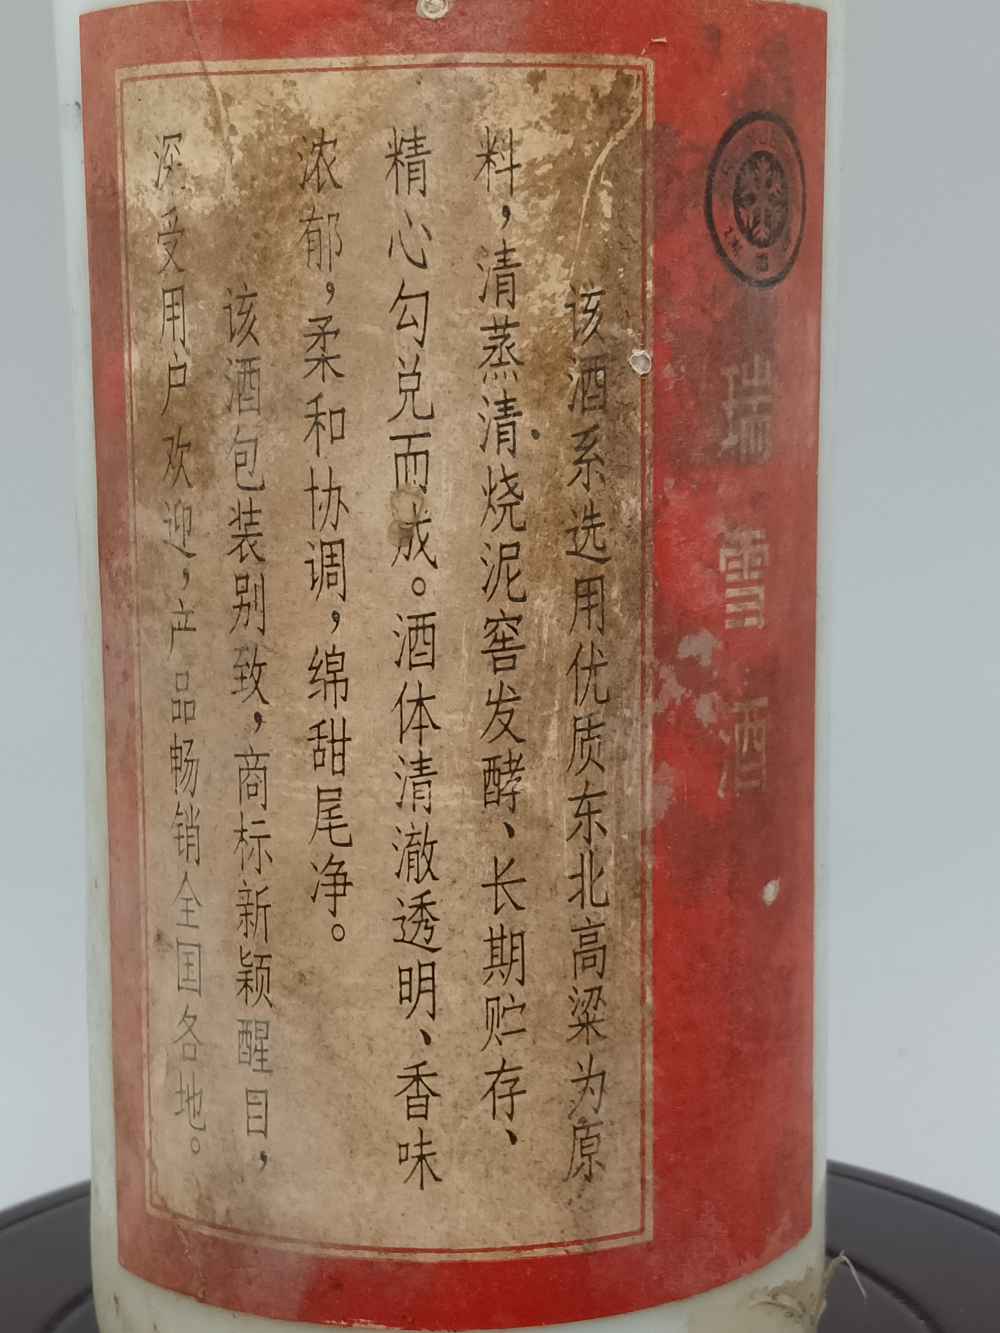 瑞雪酒
该酒系选用优质东北高粱为原
料，清蒸清烧泥窖发酵、长期贮存、
精心勾兑而成。酒体清澈透明、香味
浓郁，柔和协调，绵甜尾净。
该酒包装别致，商标新颖醒目，
深受用户欢迎，产品畅销全国各地。